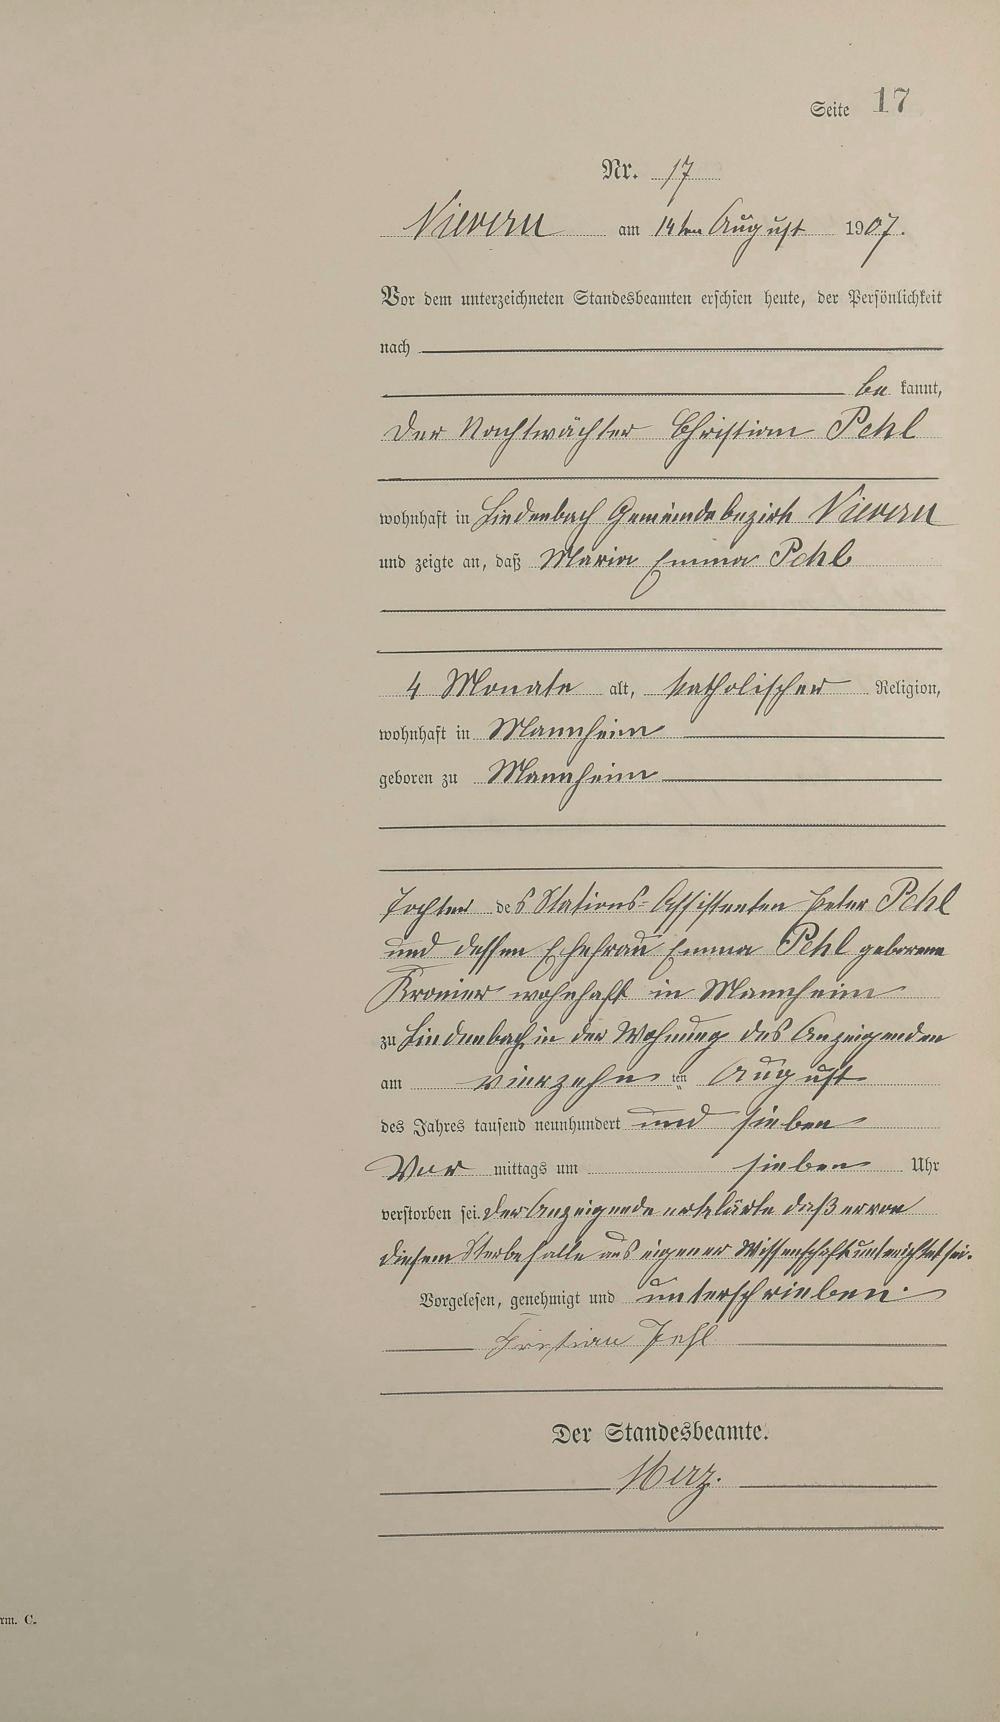 Seite 17
Nr. 17
Nievern am 14ten August 1907.
Vor dem unterzeichneten Standesbeamten erschien heute, der Persönlichkeit
nach
be kannt,
der Nachtwächter Christian Pehl
wohnhaft in Lindenbach Gemeindebezirk Nievern
und zeigte an, daß Maria Emma Pehl
4 Monate alt, katholischer Religion,
wohnhaft in Mannheim
geboren zu Mannheim
Tochter des Stations-Assistenten Peter Pehl
und dessen Ehefrau Emma Pehl geborene
wohnhaft in Mannheim
zu Lindenbach, in der Wohnung des Anzeigenden
am vierzehn ten August
des Jahres tausend neunhundert und sieben
Vor mittags um sieben Uhr
verstorben sei. Der Anzeigende erklärte daß er von
diesem Sterbefalle aus eigener Wissenschaft unterrichtet sei.
Vorgelesen, genehmigt und unterschrieben.
Cristian Pehl
Der Standesbeamte.
Merz.
rm. C.